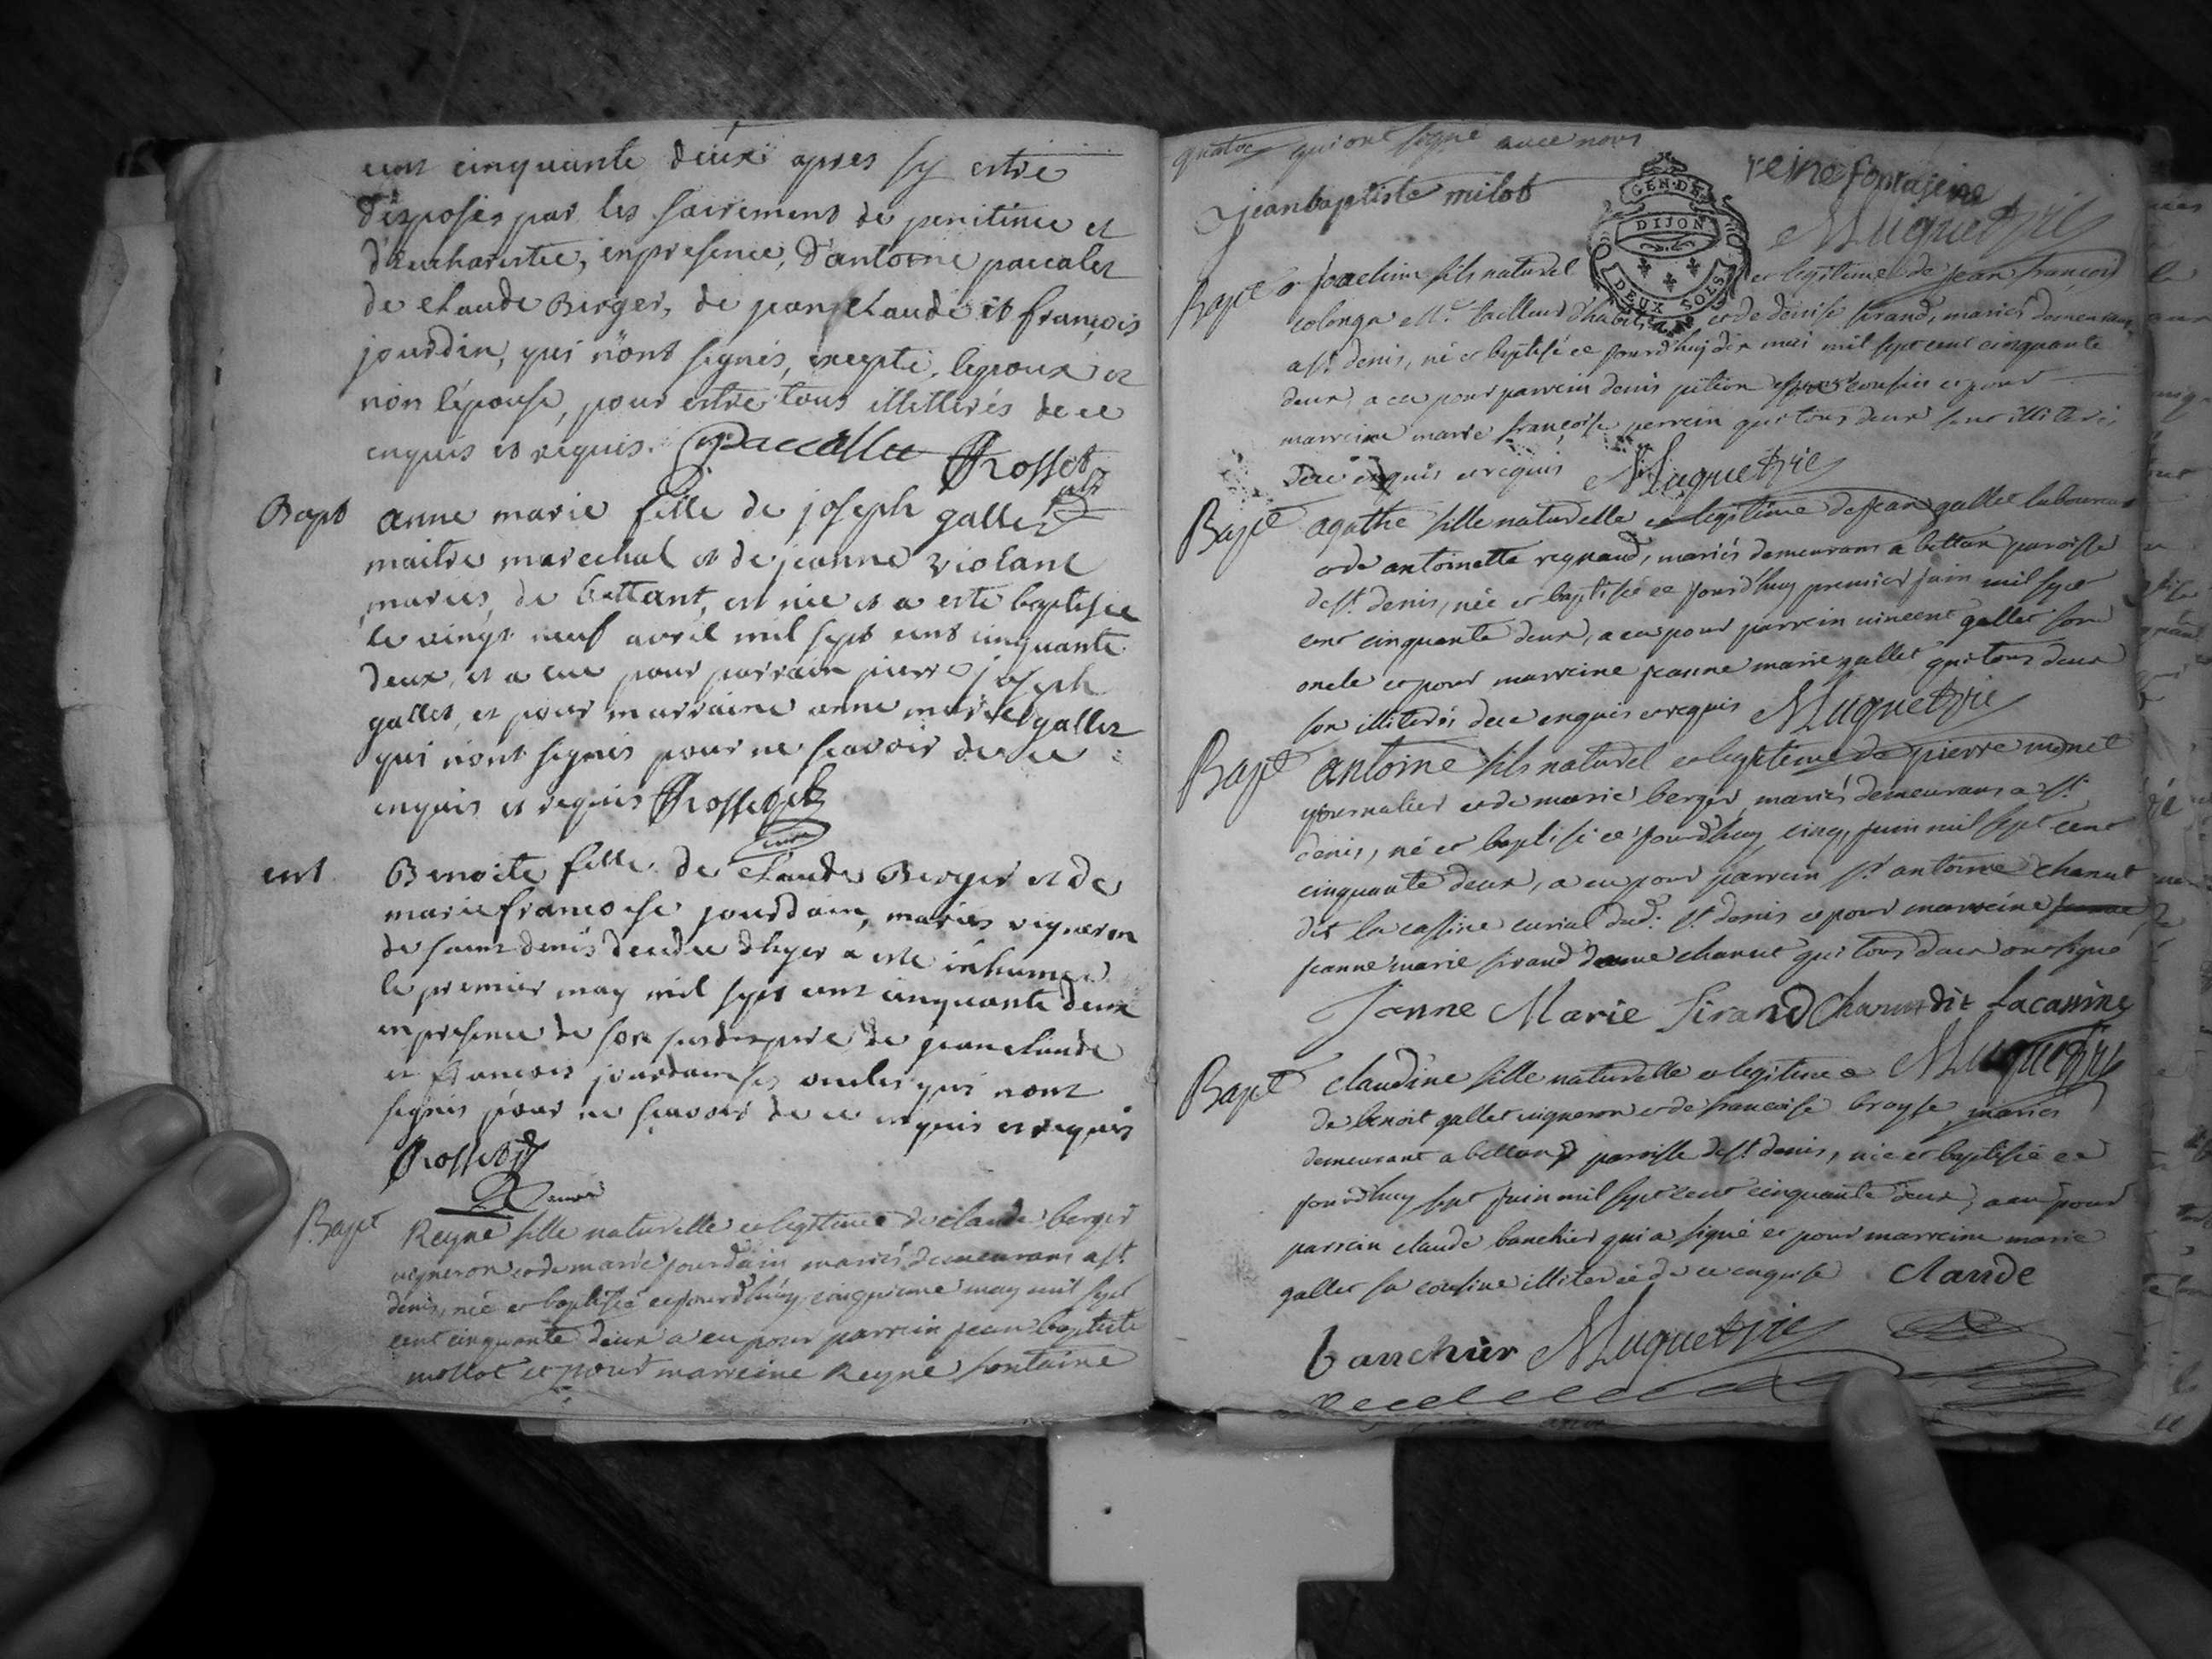 cent cinquante deux apres sy estre
disposés par les sacrements de penitence et
d'eucharistie, en presence, d'antoine paccalet
de claude Berger, de jean claude et françois
jourdin, qui n'ont signés, excepté l'epoux et
non l'épouse, pour estre tous illitterés de ce
enquis et requis. Paccallet Rosset
Bapt anne marie fille de joseph gallet
maitre marechal et de jeanne violant
mariés, de bettant, est née et a esté baptisée
le vingt neuf avril mil sept cent cinquante
deux, et a eue pour parrain pierre joseph
gallet, et pour marraine anne marie gallet
qui n'ont signés pour ne scavoir de ce
enquis et requis Rosset
curé
ent Benoite fille de claude Berger et de
marie francoise jourdain, mariés vigneron
de saint denis decedee d'hyer a esté inhumee
le premier may mil sept cent cinquante deux
en presence de son pere de jean claude
et francois jourdain ses oncles qui n'ont
signés pour ne scavoir de ce enquis et requis
Rosset
curé
Bapt Reyne fille naturelle et legitime de claude berger
vigneron et de marie jourdain mariés demeurans a st
denis, née et baptisée ce jourd'huy cinquieme may mil sept
cent cinquante deux a eu pour parrein jean baptiste
mollot et pour marreine Reyne fontaine
qui ont signé avec nous
jean baptiste milot reine fontaine
Muguet
GEN. DE
DIJON
DEUX SOLS
Bapt joachim fils naturel et legitime de jean françois
colonga Mr. tailleur d'habits et de denise sirand, mariés demeurans
a st. denis, né et baptisé ce jourd'huy dix mai mil sept cent cinquante
deux, a eu pour parrein denis cousin et pour
marreine marie françoise perrein qui tous deux sont illiterés
de ce enquis et requis Muguet
Bapt agathe fille naturelle et legitime de jean gallet laboureur
et de antoinette regnaud, mariés demeurans a bettan paroisse
de st. denis, née et baptisée ce jourd'huy premier juin mil sept
cent cinquante deux, a eu pour parrein vincent gallet son
oncle et pour marreine jeanne marie gallet qui tous deux
son illiterés de ce enquis et requis Muguet
Bapt antoine fils naturel et legitime de pierre monet
journalier et de marie berger mariés demeurans a st.
denis, né et baptisé ce jourd'huy cinq juin mil sept cent
cinquante deux, a eu pour parrein sr. antoine chanut
dit la cassine curial dud. st. denis et pour marreine
jeanne marie sirand dame chanut qui tous deux ont signé
Janne Marie Sirand Chanut dit Lacassine
Bapt claudine fille naturelle et legitime Muguet
de benoit gallet vigneron et de francoise broyse, mariés
demeurant a bettan paroisse de st. denis, née et baptisée ce
jourd'huy sept juin mil sept cent cinquante deux, a eu pour
parrein claude banchier qui a signé et pour marreine marie
gallet sa cousine illiterée de ce enquise claude
banchier Muguet